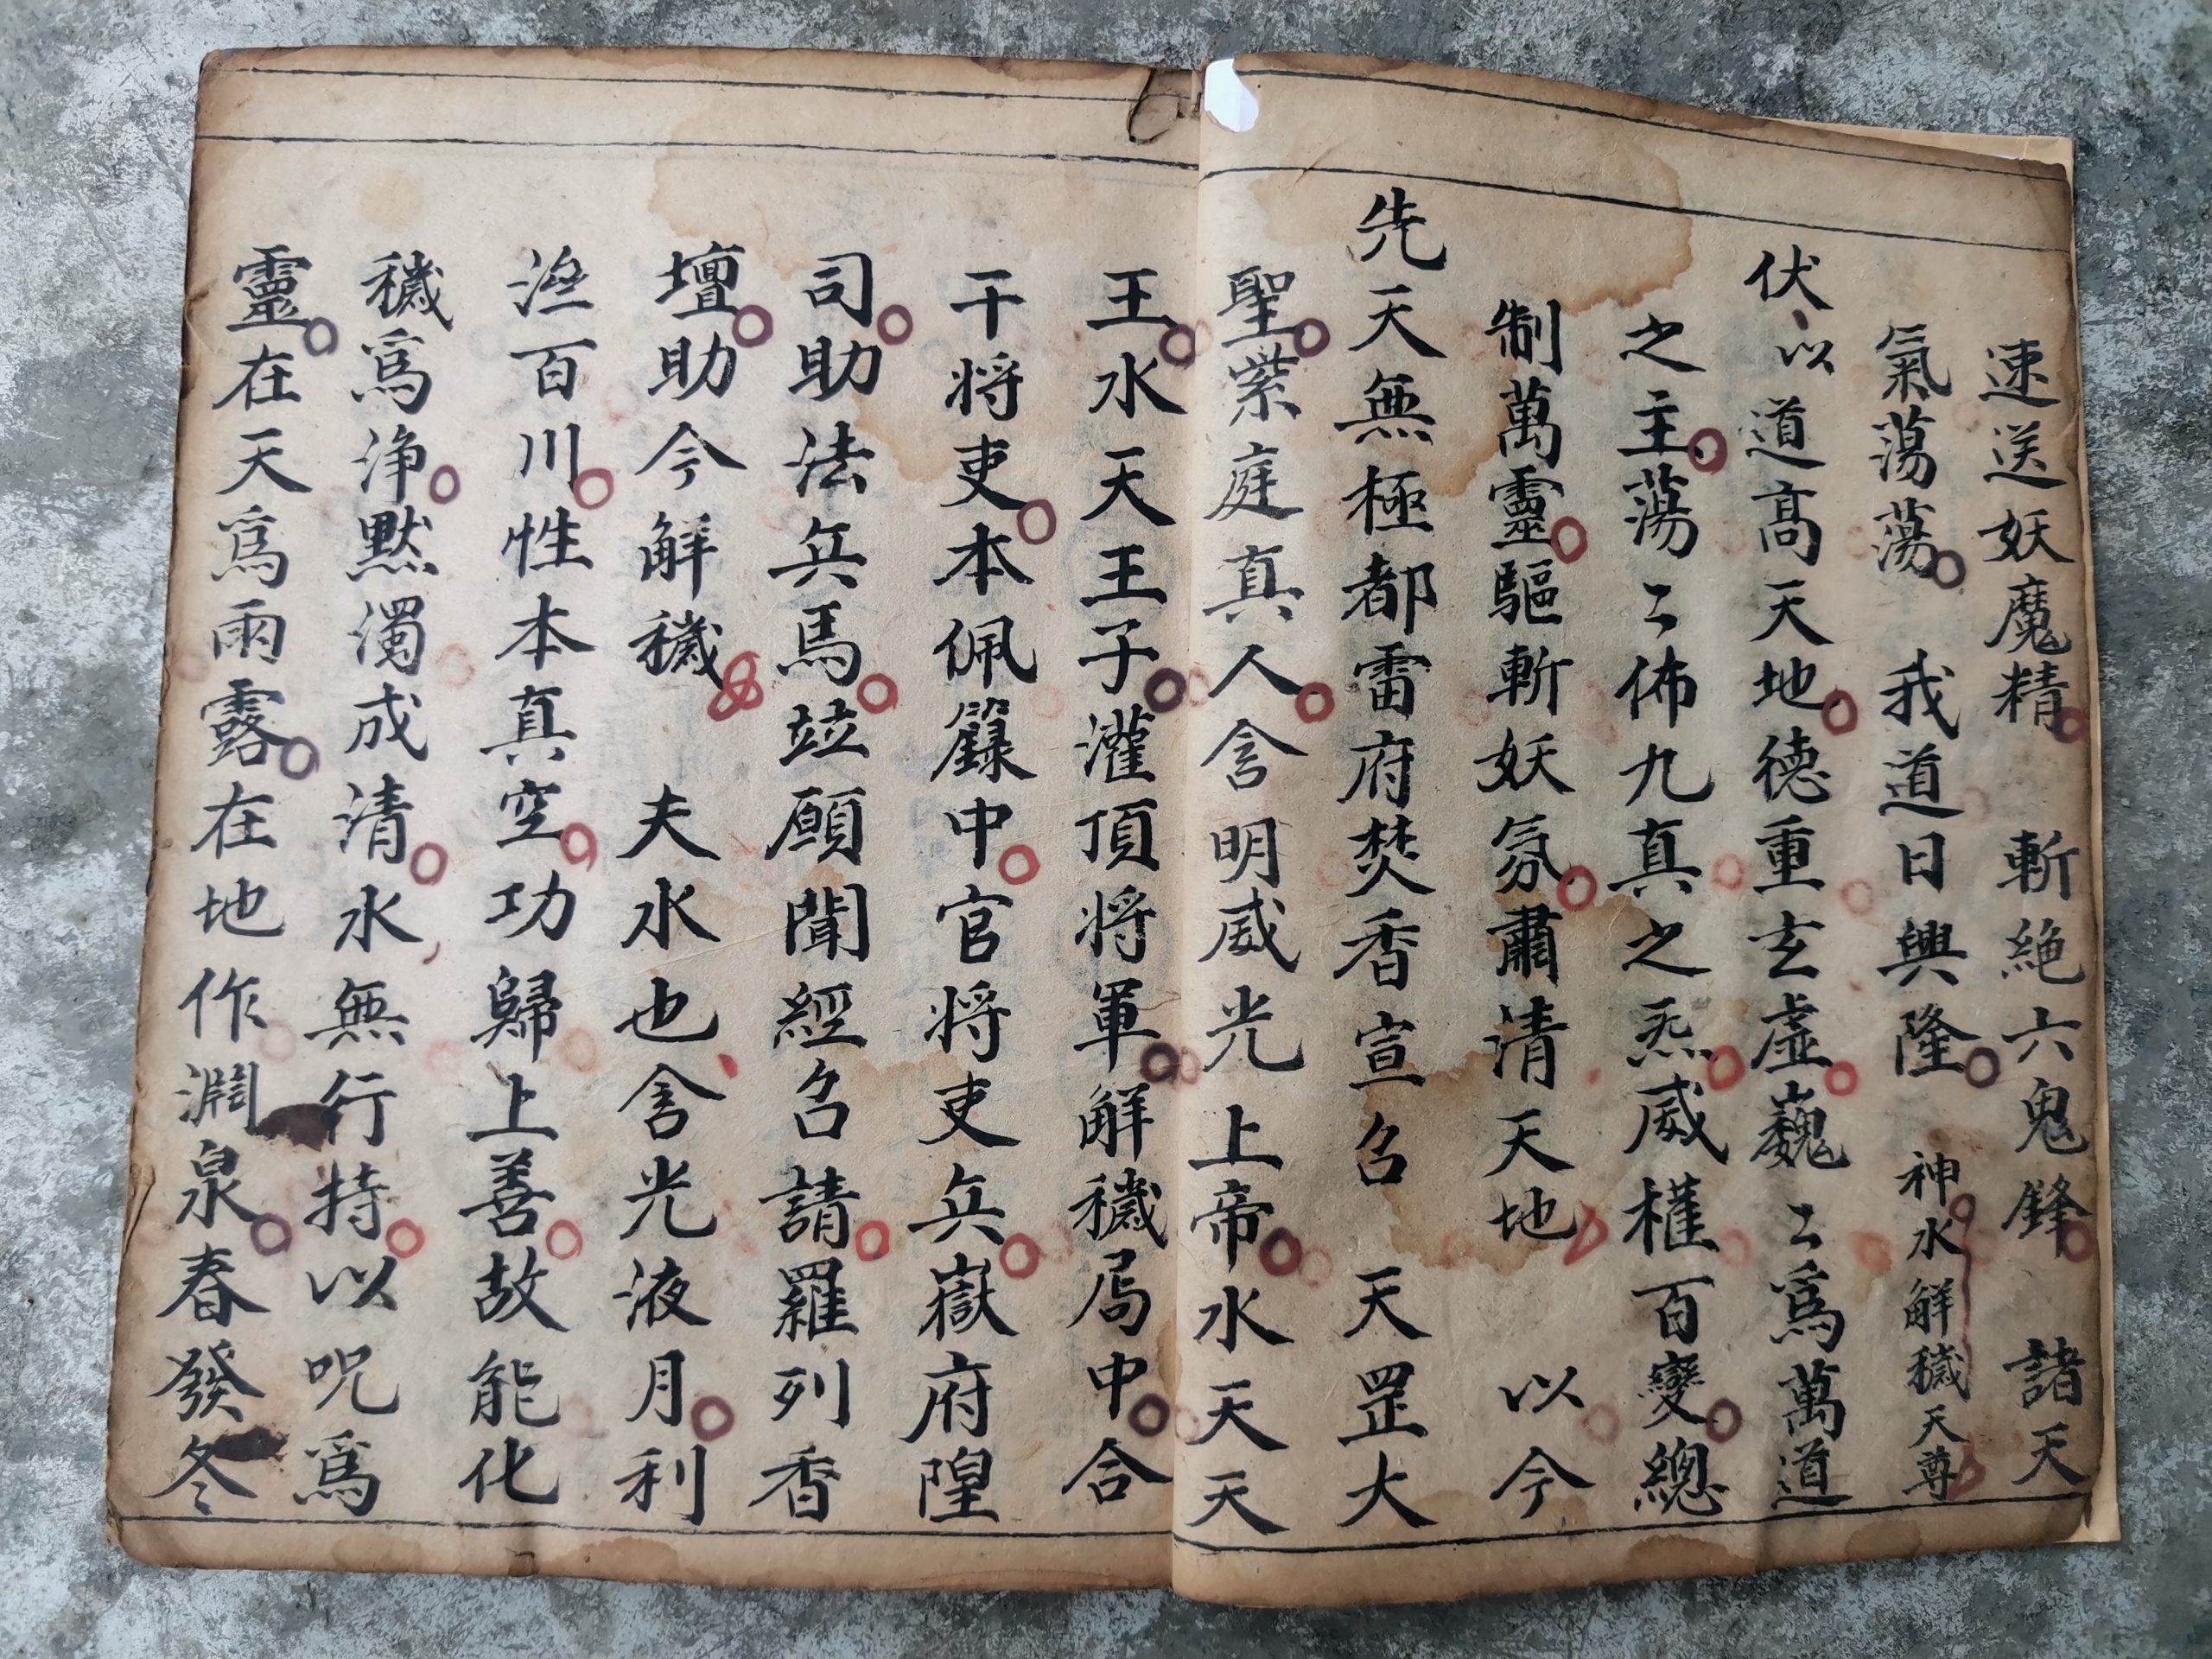 速送妖魔精 斬絶六鬼鋒 諸天
氣蕩蕩 我道日興隆 神水解穢天尊
伏以道高天地德重玄虛巍〻爲萬道
之主蕩〻佈九真之炁威權百變總
制萬靈驅斬妖氛肅清天地 以今
先天無極都雷府焚香宣召 天罡大
聖紫庭真人含明威光 上帝水天天
王水天王子灌頂將軍解穢局中合
干將吏本佩籙中官將吏兵嶽府隍
司助法兵馬竝願聞經召請羅列香
壇助今解穢 夫水也含光液月利
百川性本真空功歸上善故能化
穢爲淨默濁成清水無行持以呪爲
靈在天爲雨露在地作淵泉春發冬